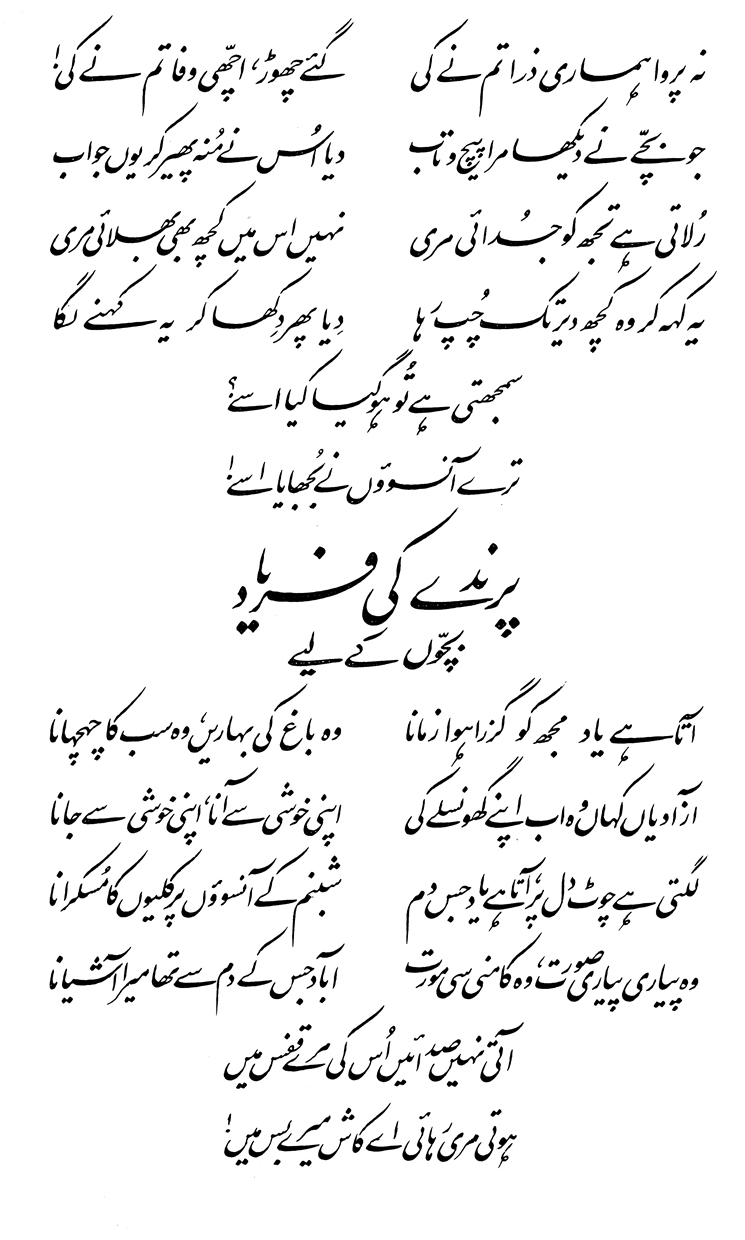 نہ پروا ہماری ذرا تم نے کی گئے چھوڑ، اچھی وفا تم نے کی!
جو بچّے نے دیکھا مرا پیچ و تاب دیا اُس نے مُنہ پھیر کر یوں جواب
رُلاتی ہے تجھ کو جُدائی مری نہیں اس میں کچھ بھی بھلائی مری
یہ کہہ کر وہ کچھ دیر تک چُپ رہا دِیا پھر دِکھا کر یہ کہنے لگا
سمجھتی ہے تُو ہو گیا کیا اسے؟
ترے آنسوؤں نے بُجھایا اسے!
پرندے کی فریاد
بچّوں کے لیے
آتا ہے یاد مجھ کو گزرا ہوا زمانا وہ باغ کی بہاریں، وہ سب کا چہچہانا
آزادیاں کہاں وہ اب اپنے گھونسلے کی اپنی خوشی سے آنا، اپنی خوشی سے جانا
لگتی ہے چوٹ دل پر، آتا ہے یاد جس دم شبنم کے آنسوؤں پر کلیوں کا مُسکرانا
وہ پیاری پیاری صورت، وہ کامنی سی مورت آباد جس کے دم سے تھا میرا آشیانا
آتی نہیں صدائیں اُس کی مرے قفس میں
ہوتی مری رہائی اے کاش میرے بس میں!